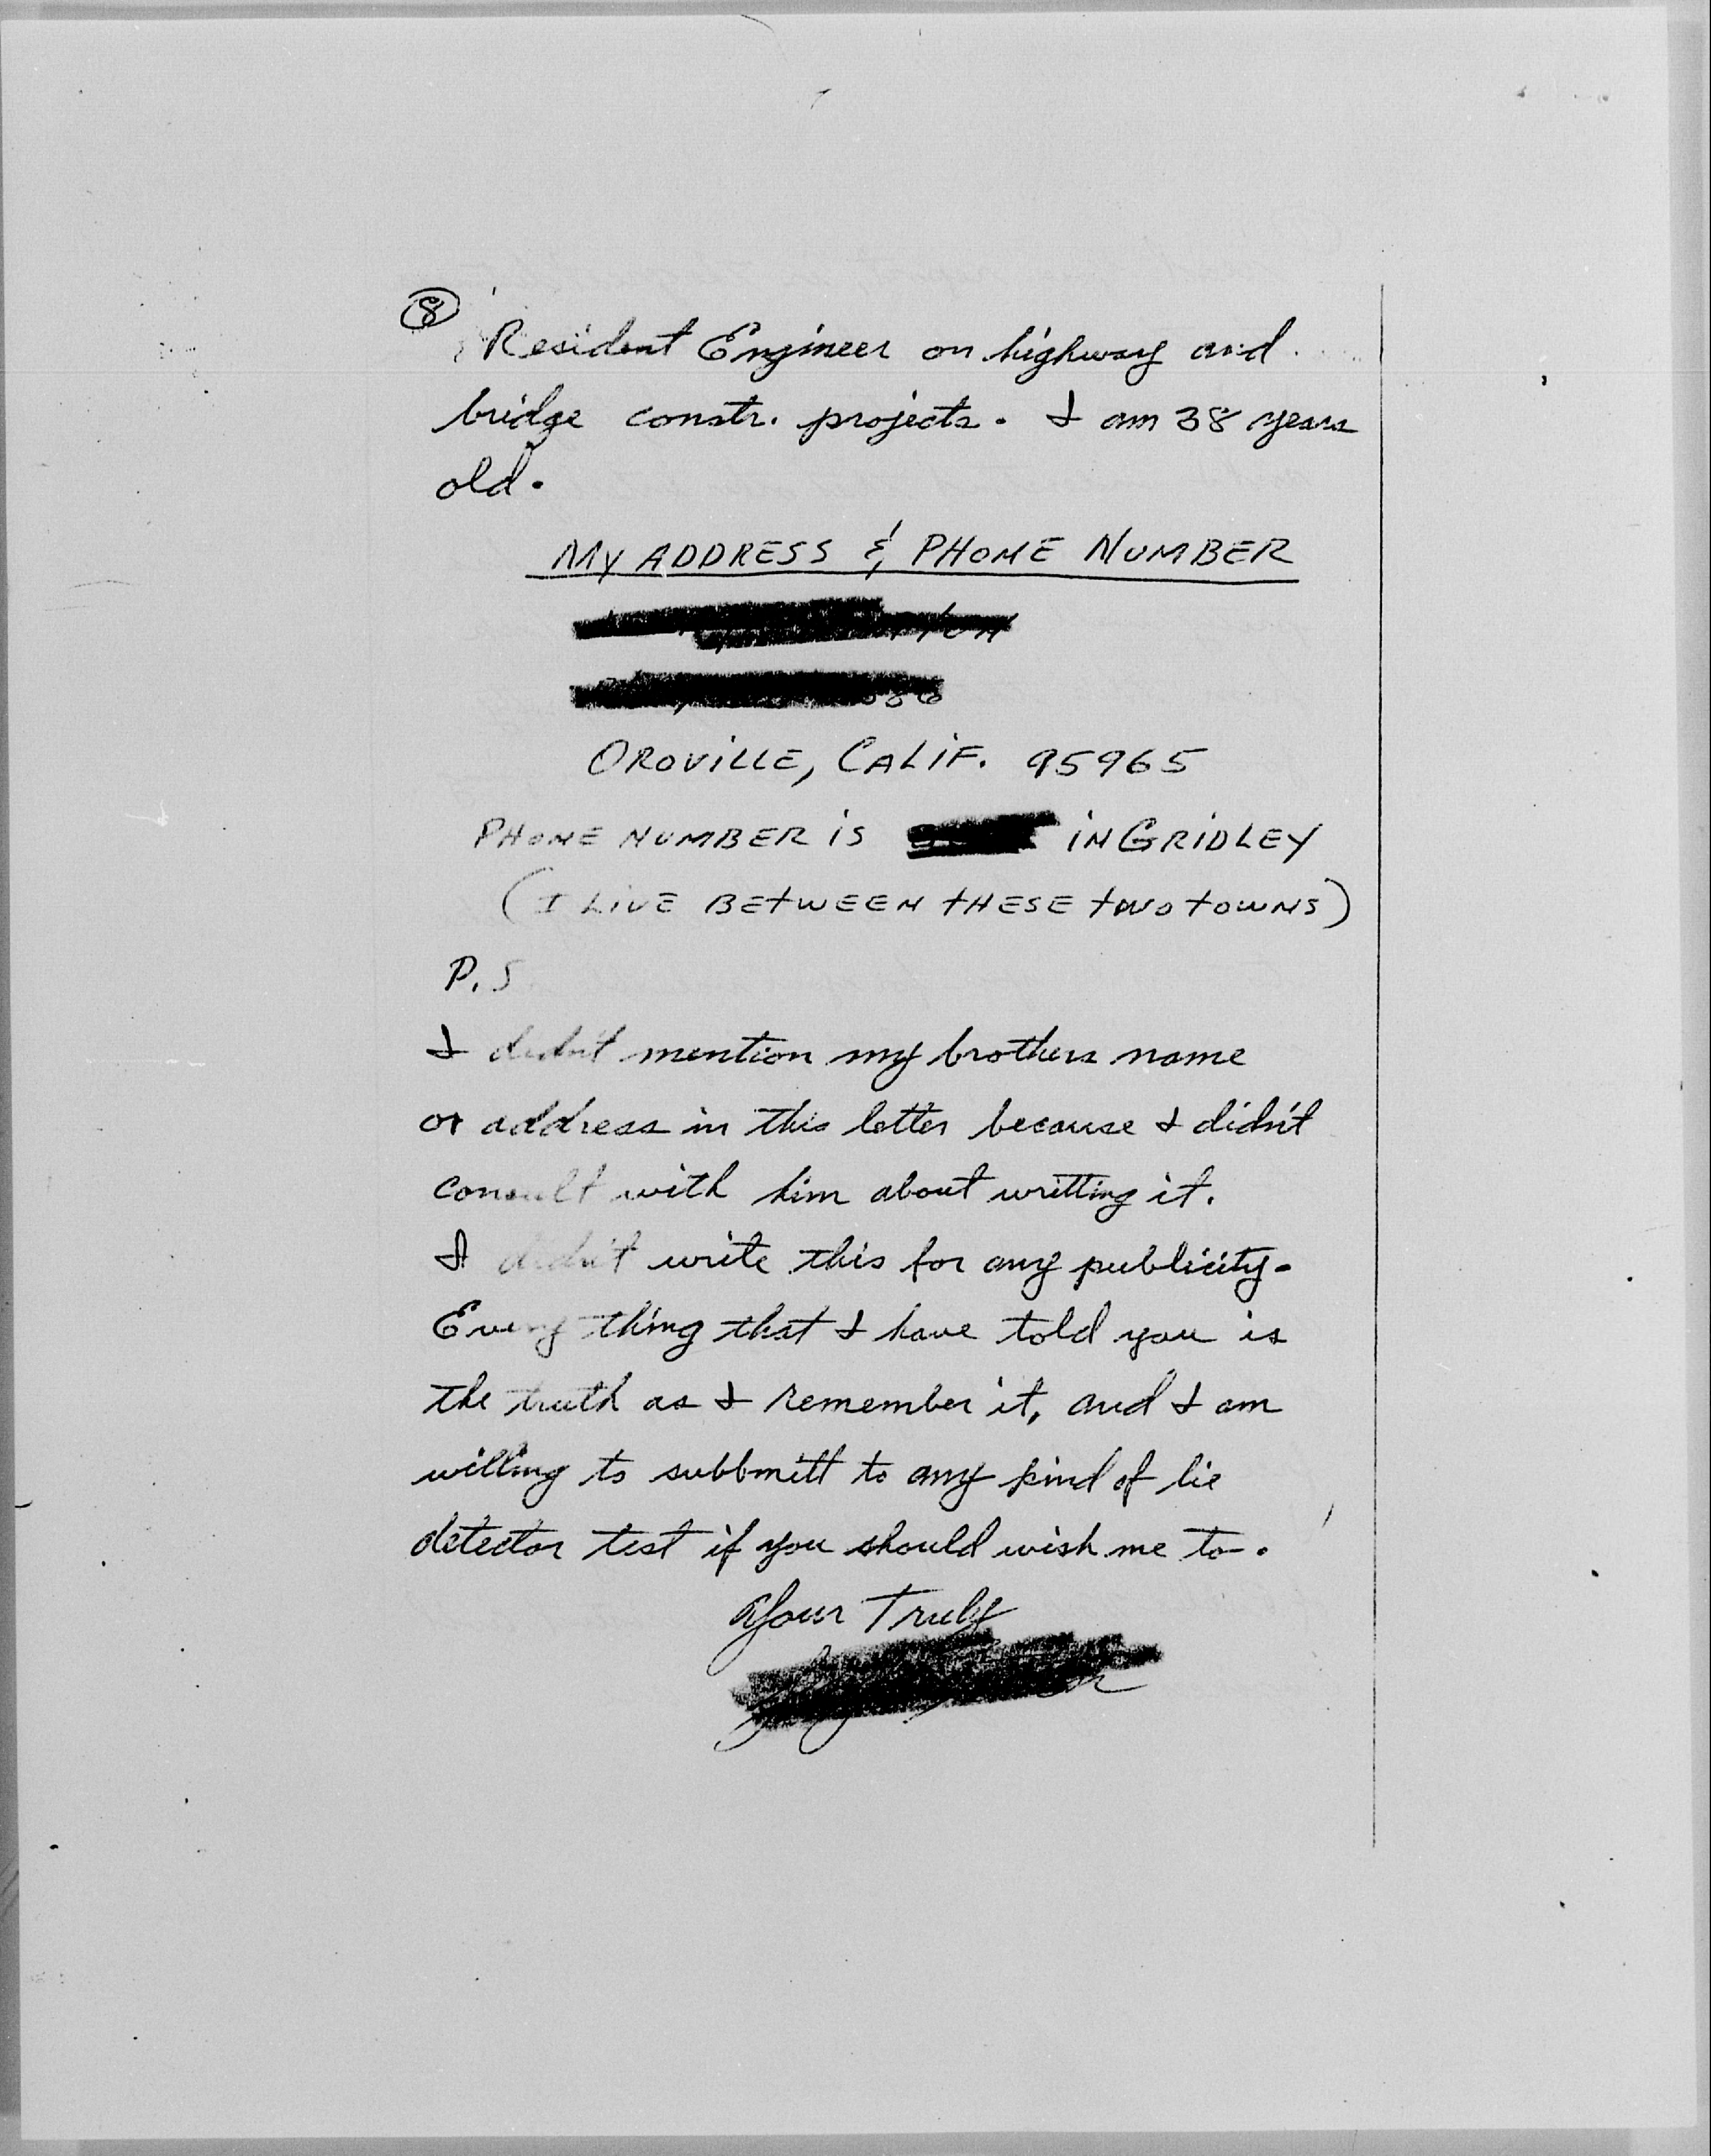 8
Resident Engineer on highway and
bridge constr. projects. I am 38 years
old.
MY ADDRESS & PHONE NUMBER
OROVILLE, CALIF. 95965
PHONE NUMBER IS IN GRIDLEY
(I LIVE BETWEEN THESE TWO TOWNS)
P.S
I didn't mention my brothers name
or address in this letter because I didn't
consult with him about writting it.
I didn't write this for any publicity.
Every thing that I have told you is
the truth as I remember it, and I am
willing to subbmitt to any kind of lie
detector test if you should wish me to.
Your Truly